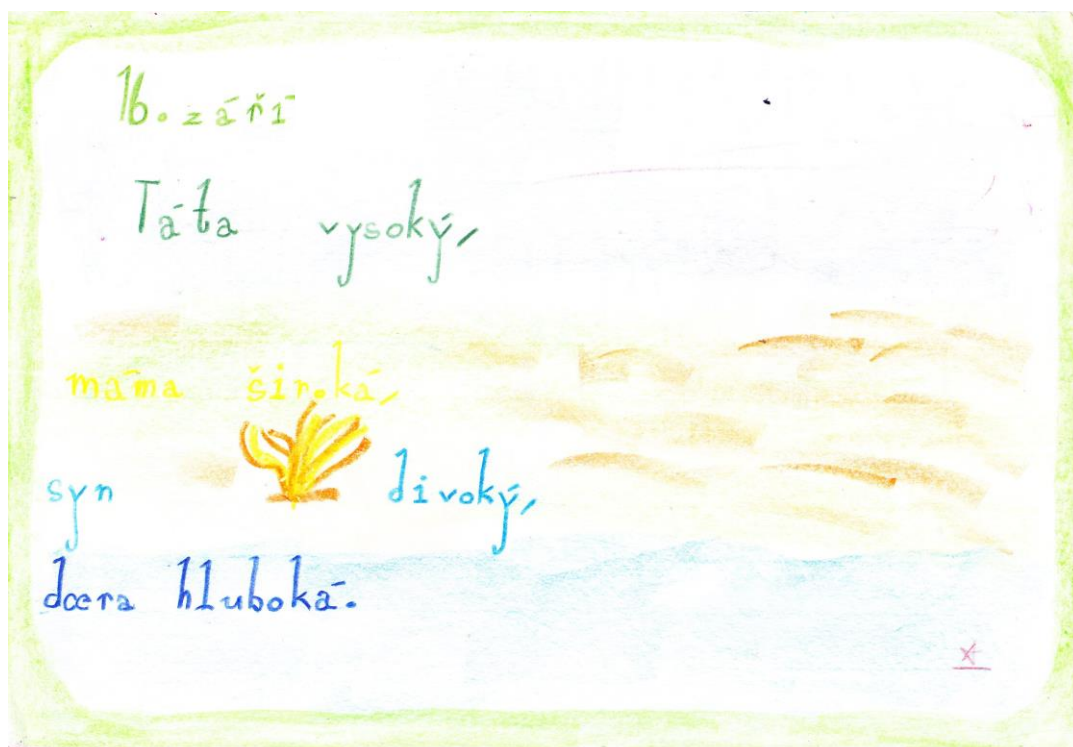 16. září
Táta vysoký,
máma široká,
syn divoký,
dcera hluboká.